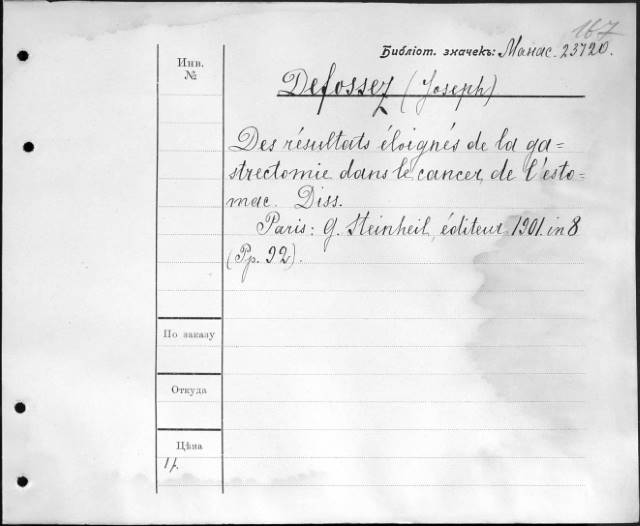 167
Библiот. значекъ: Манас. 23720.
Инв.
№
Defossez (Joseph)
Des résultats éloignés de la ga=
strectomie dans le cancer de l'esto=
mac. Diss.
Paris: G. Steinheil, éditeur, 1901. in 8
(Pp. 92).
По заказу
Откуда
Цѣна